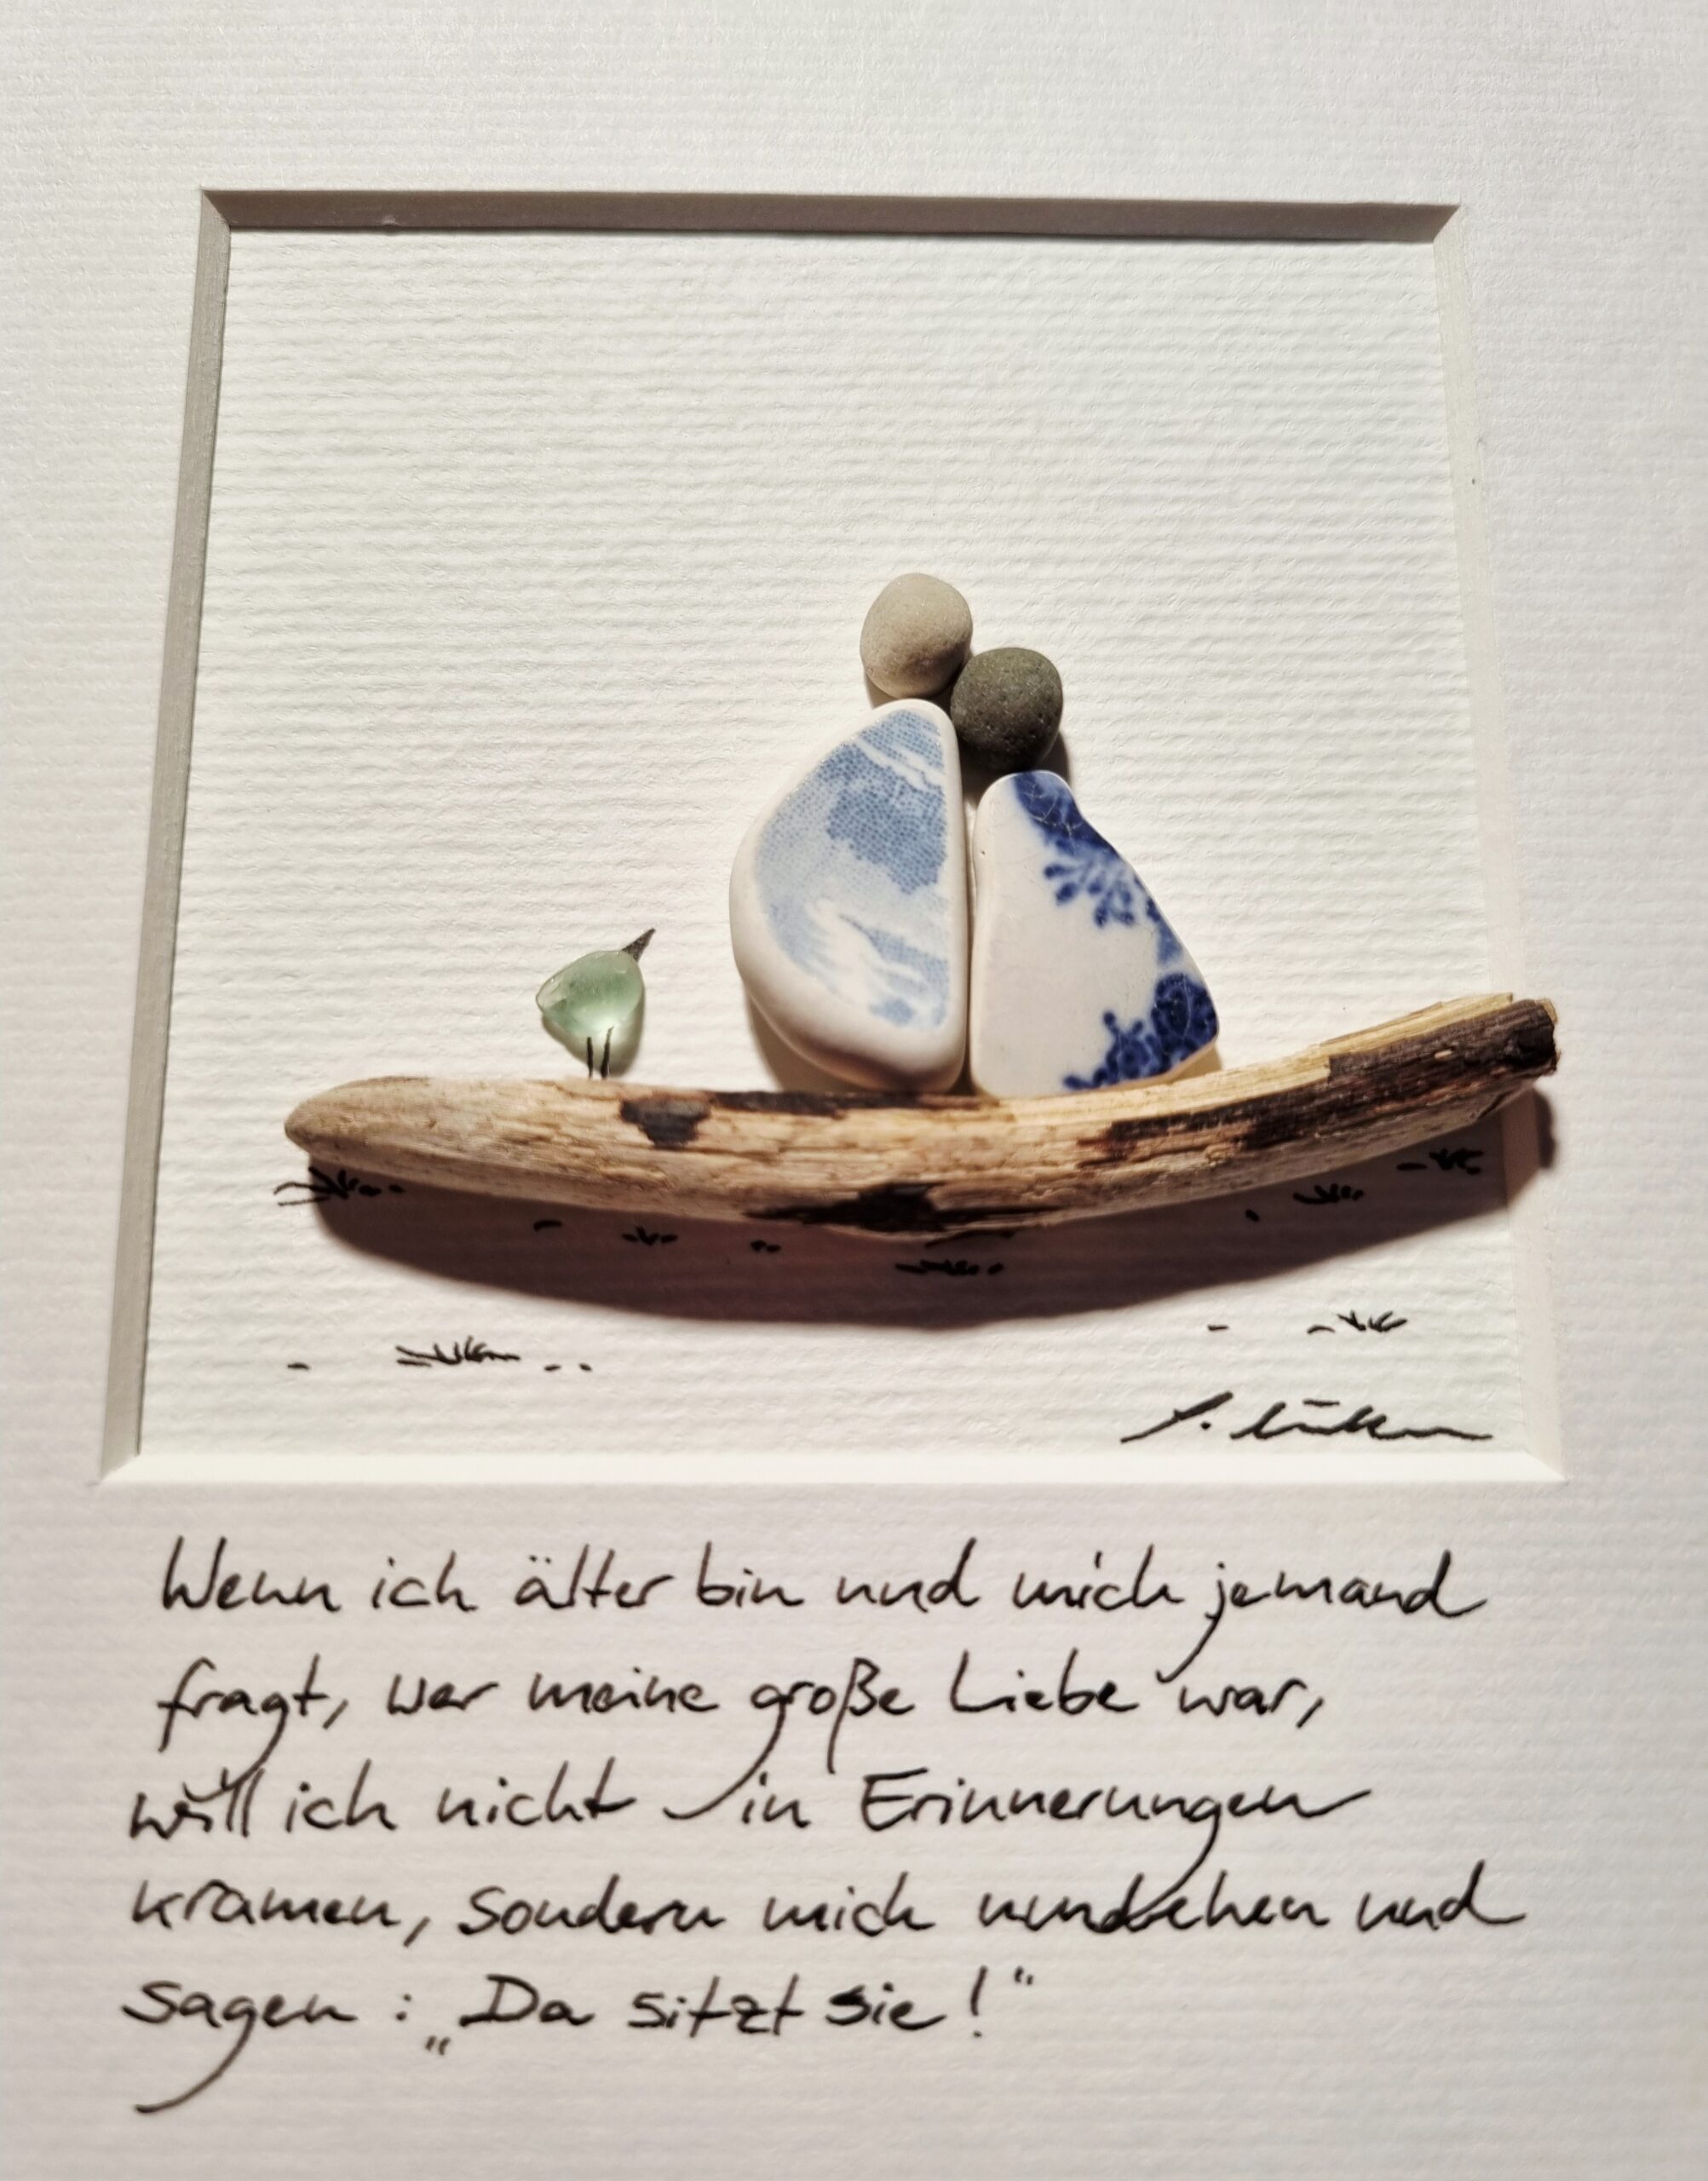 Wenn ich älter bin und mich jemand
fragt, wer meine große Liebe war,
will ich nicht in Erinnerungen
kramen, sondern mich umdrehen und
sagen: „Da sitzt sie!“